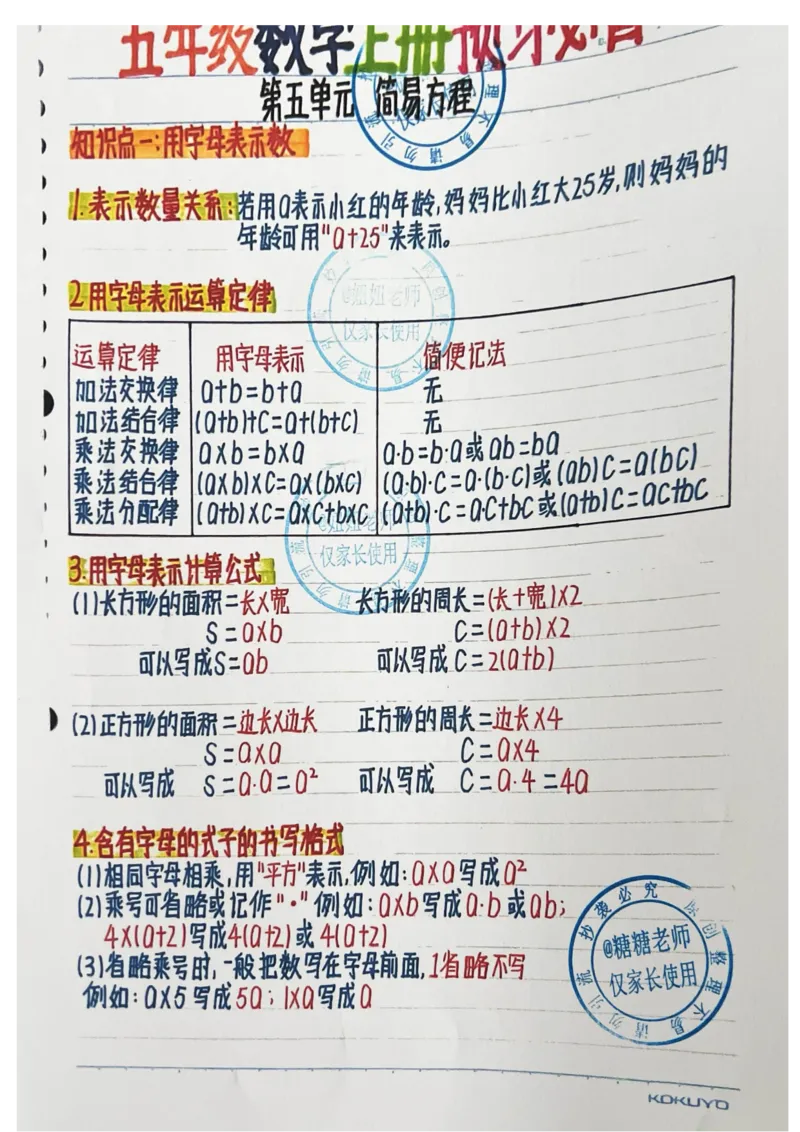 五年级数学上册预习必看
第五单元 简易方程
知识点一:用字母表示数
1.表示数量关系:若用a表示小红的年龄,妈妈比小红大25岁,则妈妈的
年龄可用"a+25"来表示。
2.用字母表示运算定律
运算定律 用字母表示 简便记法
加法交换律 a+b=b+a 无
加法结合律 (a+b)+C=a+(b+c) 无
乘法交换律 a×b=b×a a·b=b·a或ab=ba
乘法结合律 (a×b)×C=a×(b×c) (a·b)·C=a·(b·c)或(ab)C=a(bC)
乘法分配律 (a+b)×C=a×C+b×C (a+b)·C=a·C+bC或(a+b)C=aC+bC
3.用字母表示计算公式
(1)长方形的面积=长×宽 长方形的周长=(长+宽)×2
S=a×b C=(a+b)×2
可以写成S=ab 可以写成C=2(a+b)
(2)正方形的面积=边长×边长 正方形的周长=边长×4
S=a×a C=a×4
可以写成 S=a·a=a² 可以写成 C=a·4=4a
4.含有字母的式子的书写格式
(1)相同字母相乘,用"平方"表示,例如:a×a写成a²
(2)乘号可省略或记作"·"例如:a×b写成a·b或ab;
4×(a+2)写成4(a+2)或4(a+2)
(3)省略乘号时,一般把数写在字母前面,1省略不写
例如:a×5写成5a;1×a写成a
@糖糖老师
仅家长使用
抄袭必究
原创整理不易请勿引流
@妞妞老师
仅家长使用
@妞妞老师
仅家长使用
KOKUYO